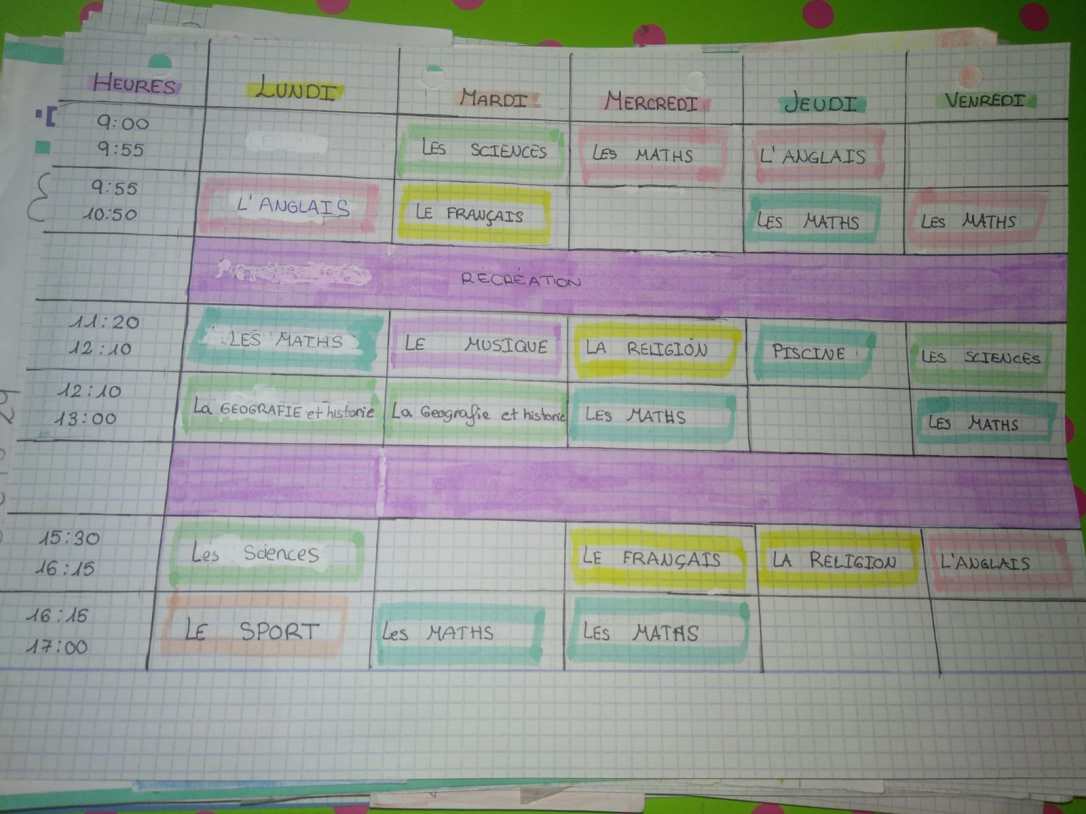 HEURES LUNDI MARDI MERCREDI JEUDI VENREDI
9:00
9:55 LES SCIENCES LES MATHS L'ANGLAIS
9:55
10:50 L'ANGLAIS LE FRANÇAIS LES MATHS LES MATHS
RECRÉATION
11:20
12:10 LES MATHS LE MUSIQUE LA RELIGIÓN PISCINE LES SCIENCES
12:10
13:00 La GEOGRAFIE et historie La Geografie et historie LES MATHS LES MATHS
15:30
16:15 Les Sciences LE FRANÇAIS LA RELIGION L'ANGLAIS
16:15
17:00 LE SPORT Les MATHS LES MATHS